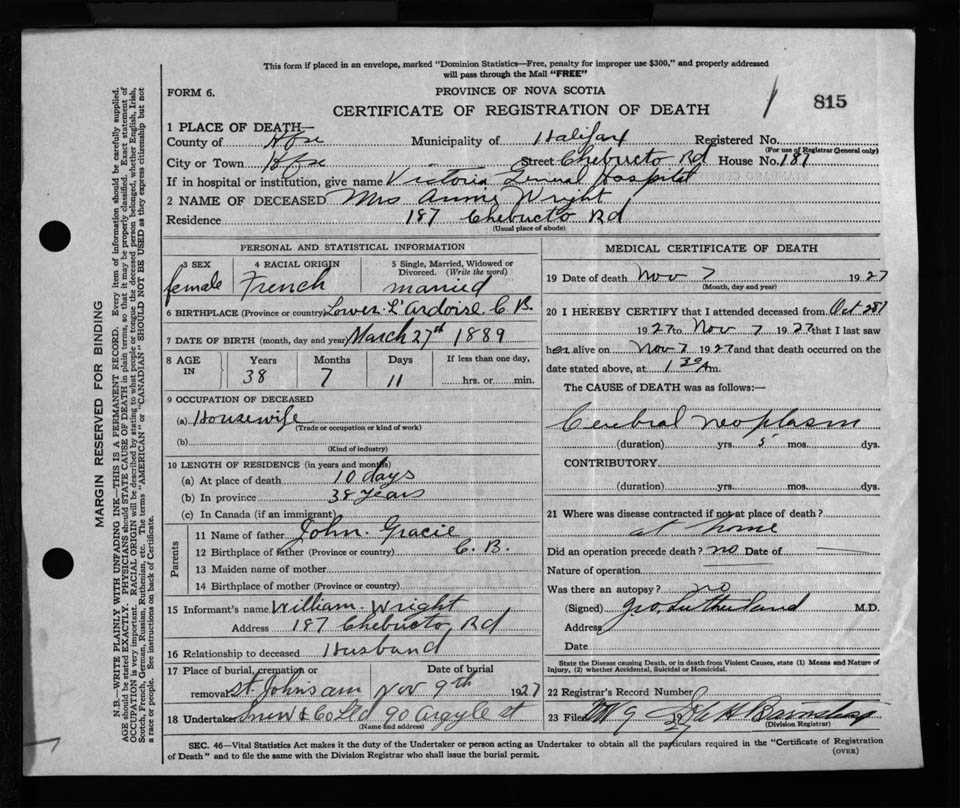 This form if placed in an envelope, marked "Dominion Statistics—Free, penalty for improper use $300," and properly addressed
will pass through the Mail "FREE"
FORM 6.
PROVINCE OF NOVA SCOTIA
CERTIFICATE OF REGISTRATION OF DEATH
815
1 PLACE OF DEATH—
County of Hfx Municipality of Halifax Registered No.
(For use of Registrar General only)
City or Town Hfx Street Chebucto Rd House No. 187
If in hospital or institution, give name Victoria General Hospital
2 NAME OF DECEASED Mrs Annie Wright
Residence 187 Chebucto Rd
(Usual place of abode)
PERSONAL AND STATISTICAL INFORMATION
3 SEX 4 RACIAL ORIGIN 5 Single, Married, Widowed or Divorced. (Write the word)
female French married
6 BIRTHPLACE (Province or country) Lower L'Ardoise C.B.
7 DATE OF BIRTH (month, day and year) March 27th 1889
8 AGE IN Years Months Days If less than one day,
38 7 11 hrs. or min.
9 OCCUPATION OF DECEASED
(a) Housewife
(Trade or occupation or kind of work)
(b)
(Kind of industry)
10 LENGTH OF RESIDENCE (in years and months)
(a) At place of death 10 days
(b) In province 38 years
(c) In Canada (if an immigrant)
Parents
11 Name of father John Gracie
12 Birthplace of father (Province or country) C.B.
13 Maiden name of mother
14 Birthplace of mother (Province or country)
15 Informant's name William Wright
Address 187 Chebucto Rd
16 Relationship to deceased Husband
17 Place of burial, cremation or removal Date of burial
St Johns Nov 9th 1927
18 Undertaker Snow & Co Ltd 90 Argyle st
(Name and address)
MEDICAL CERTIFICATE OF DEATH
19 Date of death Nov 7 1927
(Month, day and year)
20 I HEREBY CERTIFY that I attended deceased from Oct 28
1927 to Nov 7 1927 that I last saw
her alive on Nov 7 1927 and that death occurred on the
date stated above, at 1 30 Am.
The CAUSE OF DEATH was as follows:—
Cerebral neoplasm
(duration) yrs. 5 mos. dys.
CONTRIBUTORY
(duration) yrs. mos. dys.
21 Where was disease contracted if not at place of death?
at home
Did an operation precede death? no Date of
Nature of operation
Was there an autopsy? no
(Signed) Geo. Sutherland M.D.
Address
Date
State the Disease causing Death, or in death from Violent Causes, state (1) Means and Nature of
Injury, (2) whether Accidental, Suicidal or Homicidal.
22 Registrar's Record Number
23 Filed 9 1927
(Division Registrar)
SEC. 46—Vital Statistics Act makes it the duty of the Undertaker or person acting as Undertaker to obtain all the particulars required in the "Certificate of Registration
of Death" and to file the same with the Division Registrar who shall issue the burial permit.
(OVER)
MARGIN RESERVED FOR BINDING
N.B.—WRITE PLAINLY WITH UNFADING INK—THIS IS A PERMANENT RECORD. Every item of information should be carefully supplied.
AGE should be stated EXACTLY. PHYSICIANS should STATE CAUSE OF DEATH in plain terms, so that it may be properly classified. Exact statement of
OCCUPATION is very important. RACIAL ORIGIN will be described by stating to what people or tongue the deceased person belonged, whether English, Irish,
Scotch, French, German, Russian, Ruthenian, etc. The terms "AMERICAN" or "CANADIAN" SHOULD NOT BE USED as they express citizenship but not
a race or people. See instructions on back of Certificate.